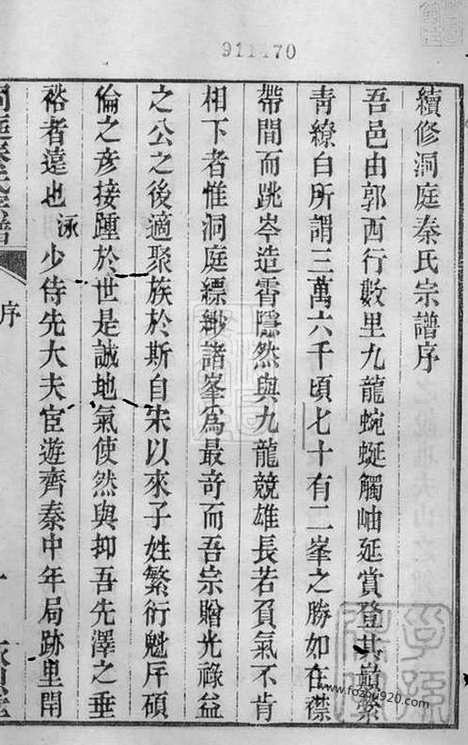 911170
續修洞庭秦氏宗譜序
吾邑由郭西行數里九龍蜿蜒觸岫延賞登其巔縈
青繚白所謂三萬六千頃七十有二峯之勝如在襟
帶間而跳岑造霄隱然與九龍競雄長若負氣不肯
相下者惟洞庭縹緲諸峯爲最奇而吾宗贈光祿益
之公之後適聚族於斯自宋以來子姓繁衍魁岸碩
倫之彥接踵於世是誠地氣使然與抑吾先澤之垂
裕者遠也泳少侍先大夫宦遊齊秦中年局跡里閈
洞庭秦氏宗譜
序
www.fozbu920.com